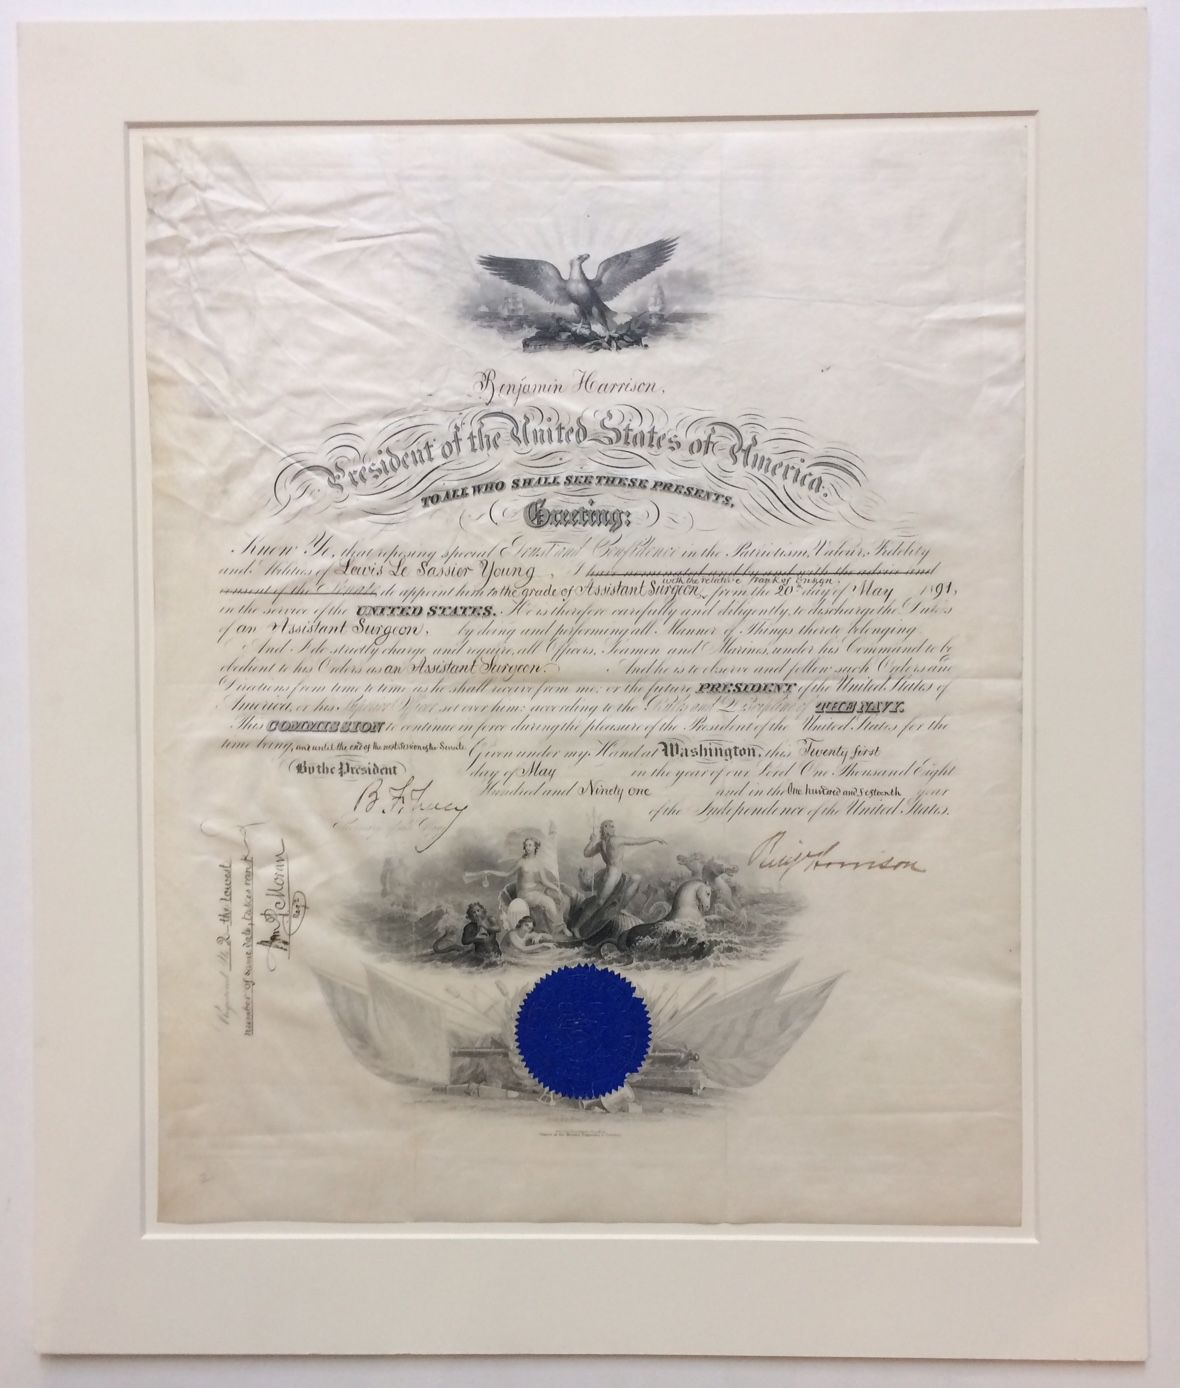 Benjamin Harrison,
President of the United States of America.
TO ALL WHO SHALL SEE THESE PRESENTS,
Greeting:
Know Ye, that reposing special Trust and Confidence in the Patriotism, Valour, Fidelity
and Abilities of Lewis Le Sassier Young, I have nominated and by and with the advice and
with the relative rank of Ensign,
consent of the Senate do appoint him to the grade of Assistant Surgeon from the 20th day of May 1891,
in the service of the UNITED STATES. He is therefore carefully and diligently, to discharge the Duties
of an Assistant Surgeon, by doing and performing all Manner of Things thereto belonging
And I do strictly charge and require, all Officers, Seamen and Marines, under his Command to be
obedient to his Orders as an Assistant Surgeon. And he is to observe and follow such Orders and
Directions from time to time as he shall receive from me, or the future PRESIDENT of the United States of
America, or his Superior Officer set over him, according to the Rules and Discipline of THE NAVY.
This COMMISSION to continue in force during the pleasure of the President of the United States for the
time being, and until the end of the next session of the Senate. Given under my Hand at Washington, this Twenty first
By the President day of May in the year of our Lord One Thousand Eight
Hundred and Ninety one and in the One hundred and fifteenth year
of the Independence of the United States.
B. F. Tracy
Secretary of the Navy
Benj Harrison
No 2 - the lowest
number of same date, takes rank